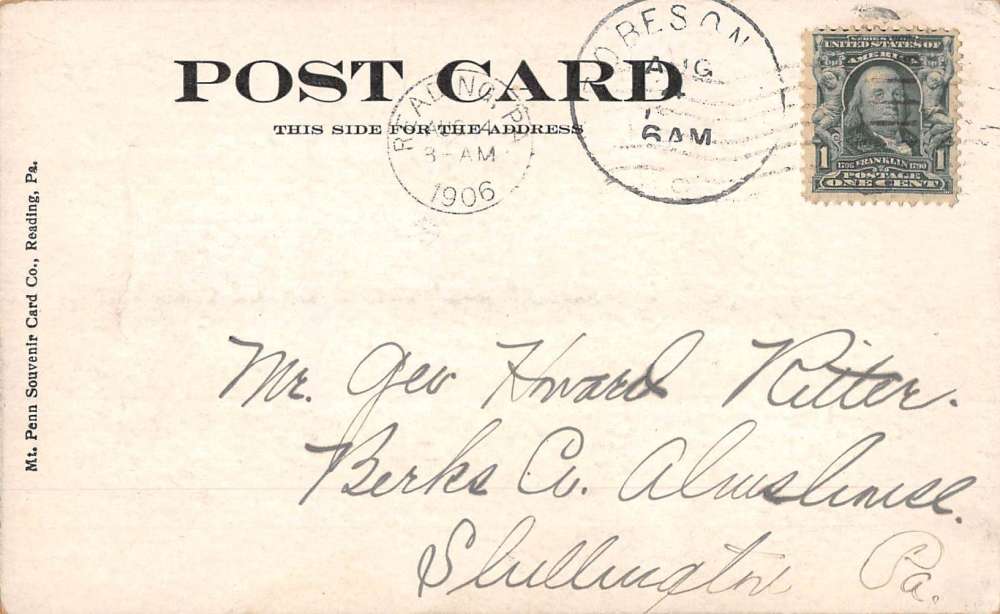 POST CARD
THIS SIDE FOR THE ADDRESS
READING, PA.
AUG 4
3-AM
1906
ROBESON
AUG
6AM
SERIES 1902
UNITED STATES OF
AMERICA
1 1706 FRANKLIN 1790 1
POSTAGE
ONE CENT
Mt. Penn Souvenir Card Co., Reading, Pa.
Mr. Geo Howard Ritter.
Berks Co. Almshouse.
Shillington Pa.